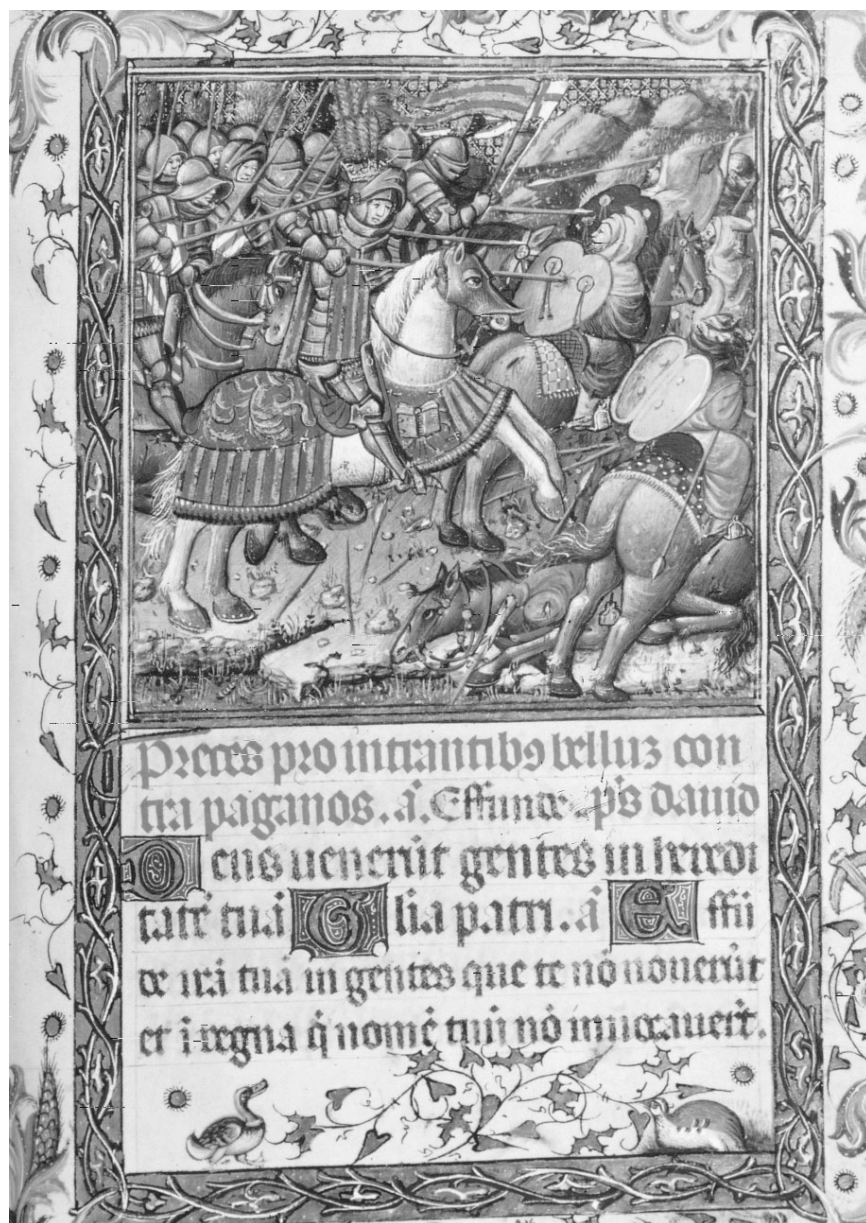 Preces pro intrantibꝯ belluz con
tra paganos. añ. Effunde. ps̄ dauid
Deus uenerūt gentes in heredi
tatē tuā Glīa patri. añ Effū
de irā tuā in gentes que te nō nouerūt
et ī regna q̄ nomē tuū nō inuocauerūt.